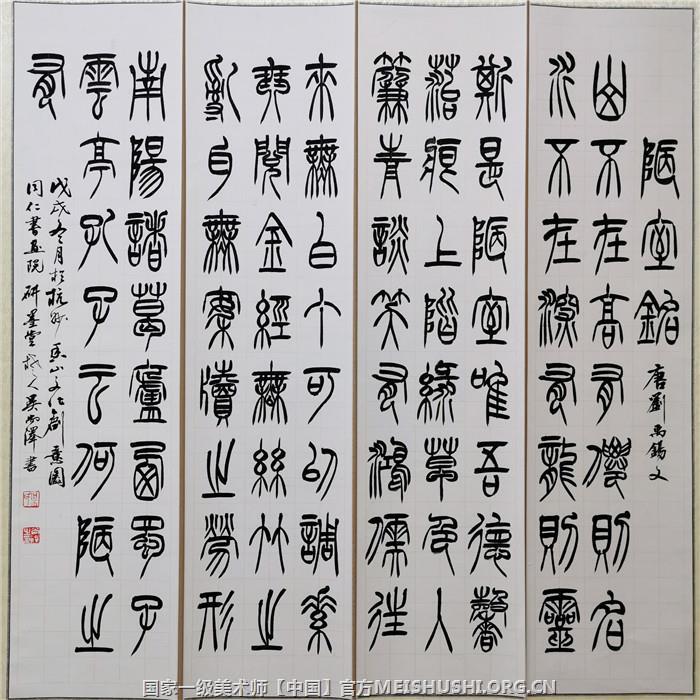 陋室銘 唐劉禹錫文
山不在高有僊則名
水不在深有龍則靈
斯是陋室唯吾德馨
苔痕上階緑草色入
簾青談笑有鴻儒往
來無白丁可以調素
琴閱金經無絲竹之
亂耳無案牘之勞形
南陽諸葛廬西蜀子
雲亭孔子云何陋之
有
戊戌冬月於杭州山文化創意園
同仁書画院研墨堂人吳澤書
国家一级美术师【中国】官方MEISHUSHI.ORG.CN